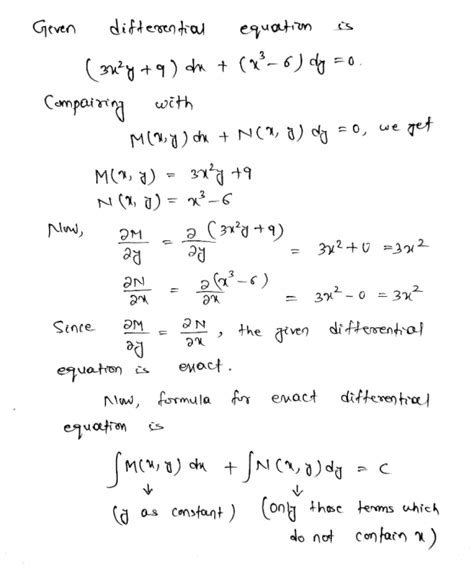 Given differential equation is
(3x²y + 9) dx + (x³ - 6) dy = 0.
Compairing with
M(x, y) dx + N(x, y) dy = 0, we get
M(x, y) = 3x²y + 9
N(x, y) = x³ - 6
Now, ∂M/∂y = ∂(3x²y + 9)/∂y = 3x² + 0 = 3x²
∂N/∂x = ∂(x³ - 6)/∂x = 3x² - 0 = 3x²
Since ∂M/∂y = ∂N/∂x, the given differential
equation is exact.
Now, formula for exact differential
equation is
∫M(x, y) dx + ∫N(x, y) dy = C
↓ ↓
(y as constant) (only those terms which
do not contain x)